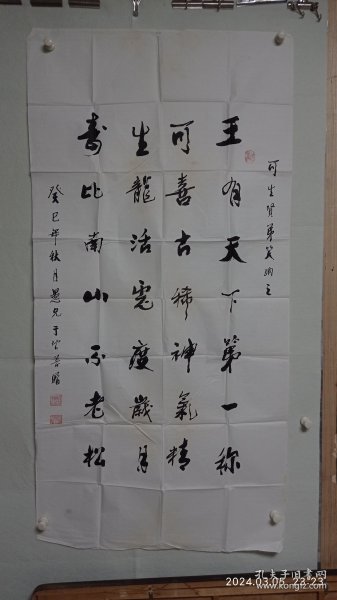 可生贤弟笑纳之
王有天下第一称
可喜古稀神氣精
生龍活虎度歲月
壽比南山不老松
癸巳年秋月愚兄于
2024.03.05 23:23
孔夫子旧书网
www.kongfz.com